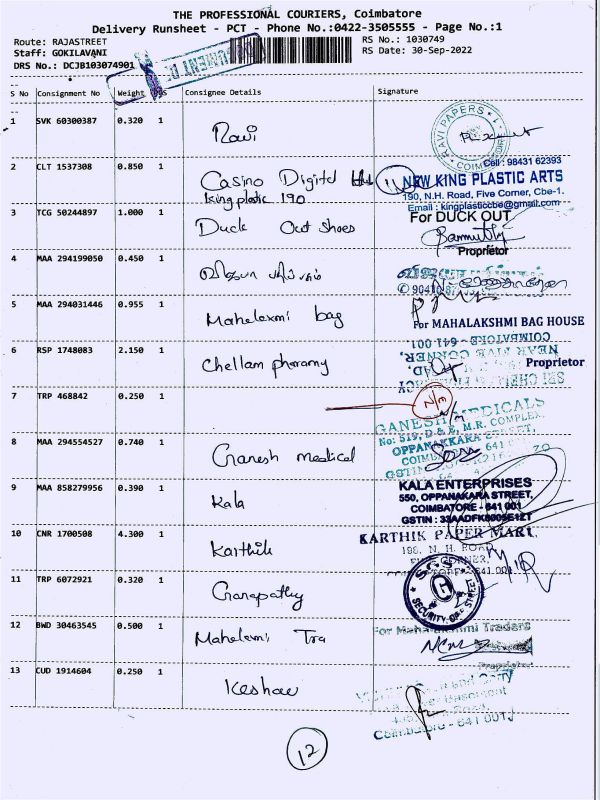 THE PROFESSIONAL COURIERS, Coimbatore
Delivery Runsheet - PCT - Phone No.:0422-3505555 - Page No.:1
Route: RAJASTREET
RS No.: 1030749
Staff: GOKILAVANI
RS Date: 30-Sep-2022
DRS No.: DCJB103074901
S No Consignment No Weight Consignee Details Signature
1 SVK 60300387 0.320 1 Ravi
RAVI PAPERS
2 CLT 1537308 0.850 1 Casino Digital
King plastic 190
Cell : 98431 62393
NEW KING PLASTIC ARTS
190, N.H. Road, Five Corner, Cbe-1.
Email : kingplasticcbe@gmail.com
3 TCG 50244897 1.000 1 Duck Out Shoes
For DUCK OUT
Proprietor
4 MAA 294199050 0.450 1
5 MAA 294031446 0.955 1 Mahelaxmi bag
For MAHALAKSHMI BAG HOUSE
Proprietor
COIMBATORE - 641 001
NEAR FIVE CORNER,
6 RSP 1748083 2.150 1 Chellam pharamy
7 TRP 468842 0.250 1
N/E
8 MAA 294554527 0.740 1 Ganesh medical
GANESH MEDICALS
No: 519, D & E, M.R. COMPLEX,
OPPANAKKARA STREET,
9 MAA 858279956 0.390 1 Kala
KALA ENTERPRISES
550, OPPANAKARA STREET,
COIMBATORE - 641 001
10 CNR 1700508 4.300 1 Karthik
KARTHIK PAPER MART,
196, N. H. ROAD
11 TRP 6072921 0.320 1 Ganapathy
S.G.S.
SECURITY
12 BWD 30463545 0.500 1 Mahelaxmi Tra
For Mahalakshmi Traders
13 CUD 1914604 0.250 1 Keshav
12